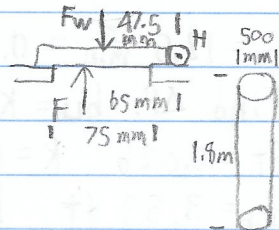 Fw 47.5 mm H
500 mm
F 65 mm
75 mm
1.8m